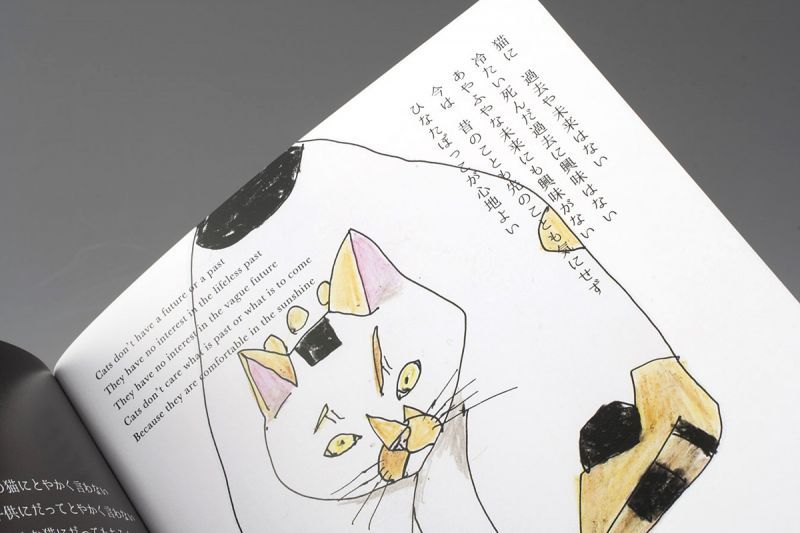 猫に　過去や未来はない
冷たい死んだ過去に興味はない
あやふやな未来にも興味がない
今は　昔のことも先のことも気にせず
ひなたぼっこが心地よい
Cats don't have a future or a past
They have no interest in the lifeless past
They have no interest in the vague future
Cats don't care what is past or what is to come
Because they are comfortable in the sunshine
の猫にとやかく言わない
子供にだってとやかく言わない